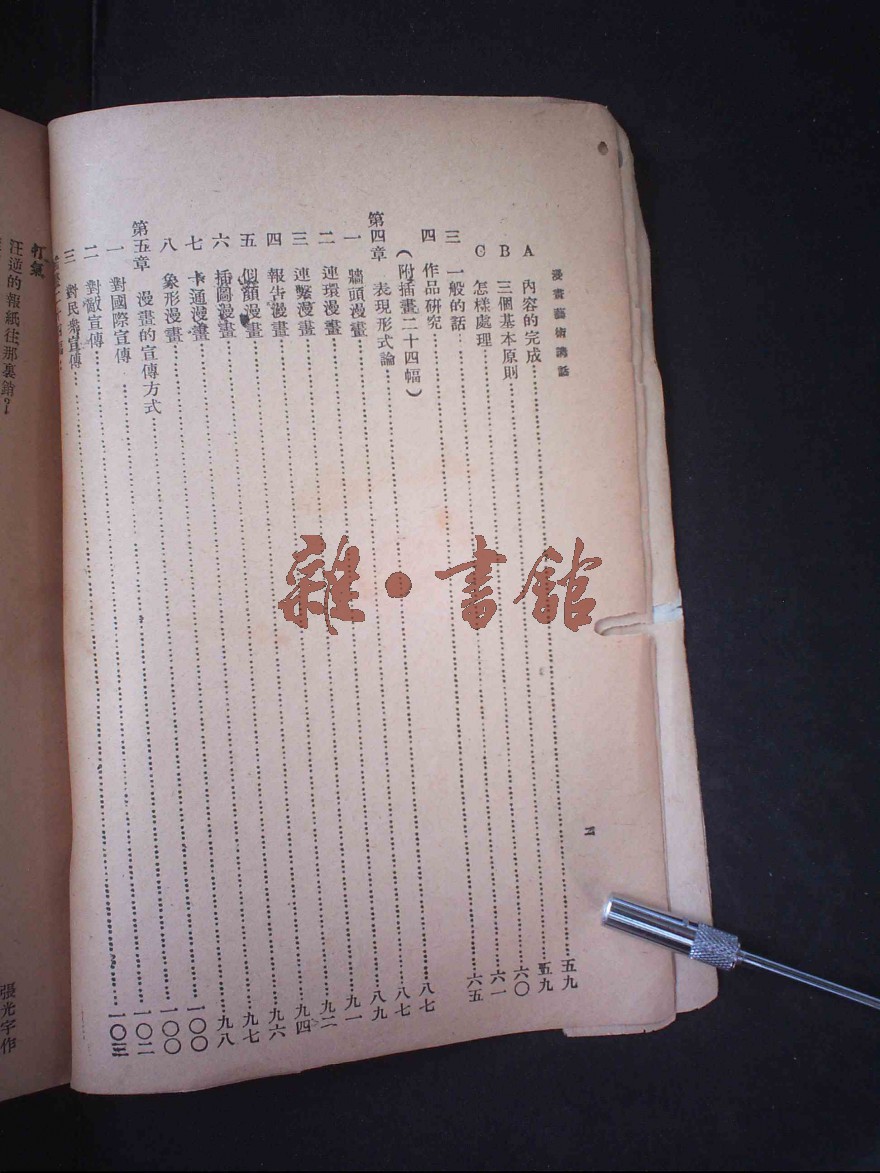 漫畫藝術講話
A 內容的完成……五九
B 三個基本原則……五九
C 怎樣處理……六〇
三 一般的話……六一
四 作品研究……六五
(附插畫二十四幅)
第四章 表現形式論……八七
一 牆頭漫畫……八七
二 連環漫畫……八九
三 連繫漫畫……九一
四 報告漫畫……九二
五 似顏漫畫……九四
六 插圖漫畫……九六
七 卡通漫畫……九七
八 象形漫畫……九八
第五章 漫畫的宣傳方式……一〇〇
一 對國際宣傳……一〇〇
二 對敵宣傳……一〇二
三 對民衆宣傳……一〇三
雜·書館
打氣
汪逆的報紙往那裏銷?
張光宇作